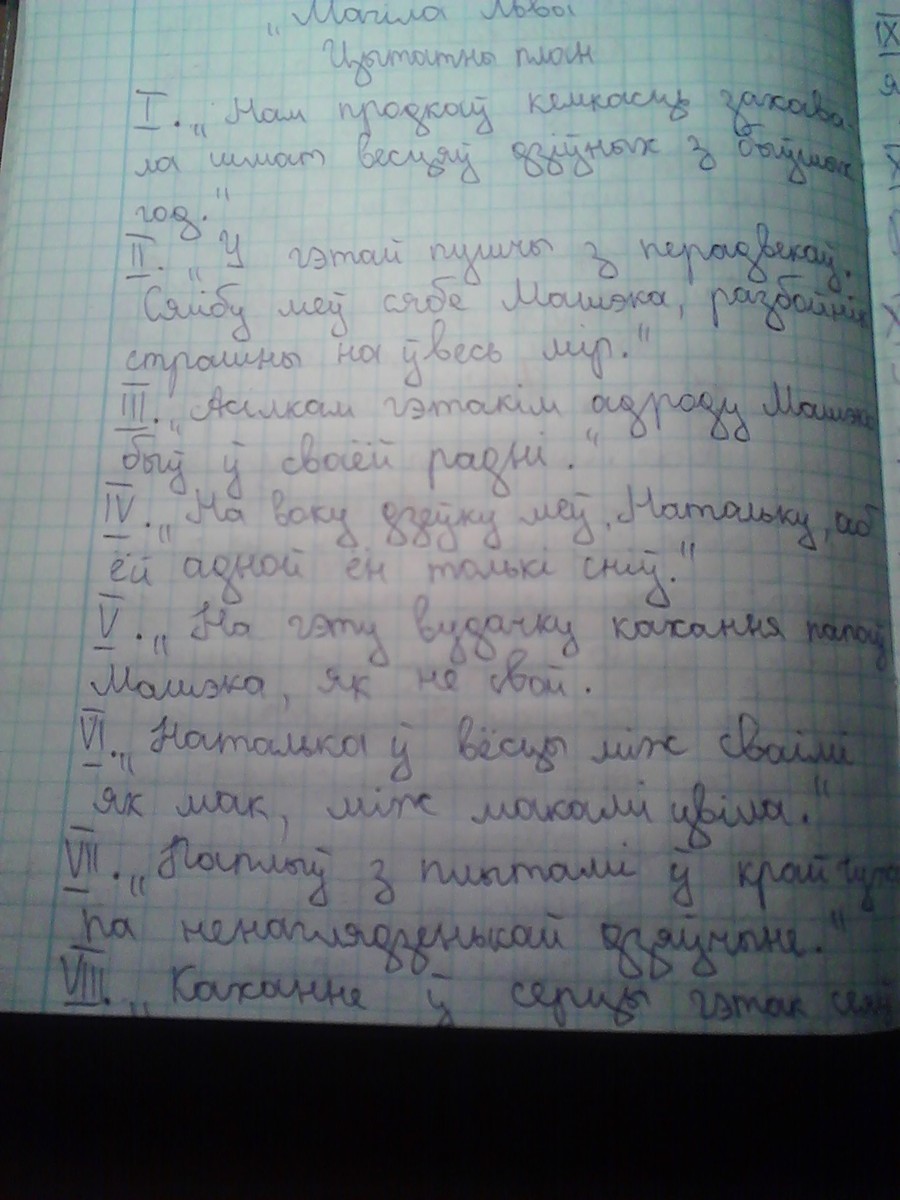 „Магіла льва
Цытатны план
I. „Нам продкаў кемкасць захава-
ла шмат весцяў дзіўных з быўшых
год."
II. „У гэтай пушчы з перадвекаў.
Сялібу меў сябе Машэка, разбойнік
страшны на ўвесь мір."
III. „Асілкам гэтакім адроду Машэка
быў ў сваёй радні."
IV. „На воку дзеўку меў, Натальку, аб
ёй адной ён толькі сніў."
V. „На гэту вудачку кахання папаў
Машэка, як не свой.
VI. „Наталька ў вёсцы між сваімі
як мак, між макамі цвіла."
VII. „Паплыў з плытамі ў край
па ненагляdзенькай дзяўчыне."
VIII. „Каханне ў серцы гэтак
IX
я